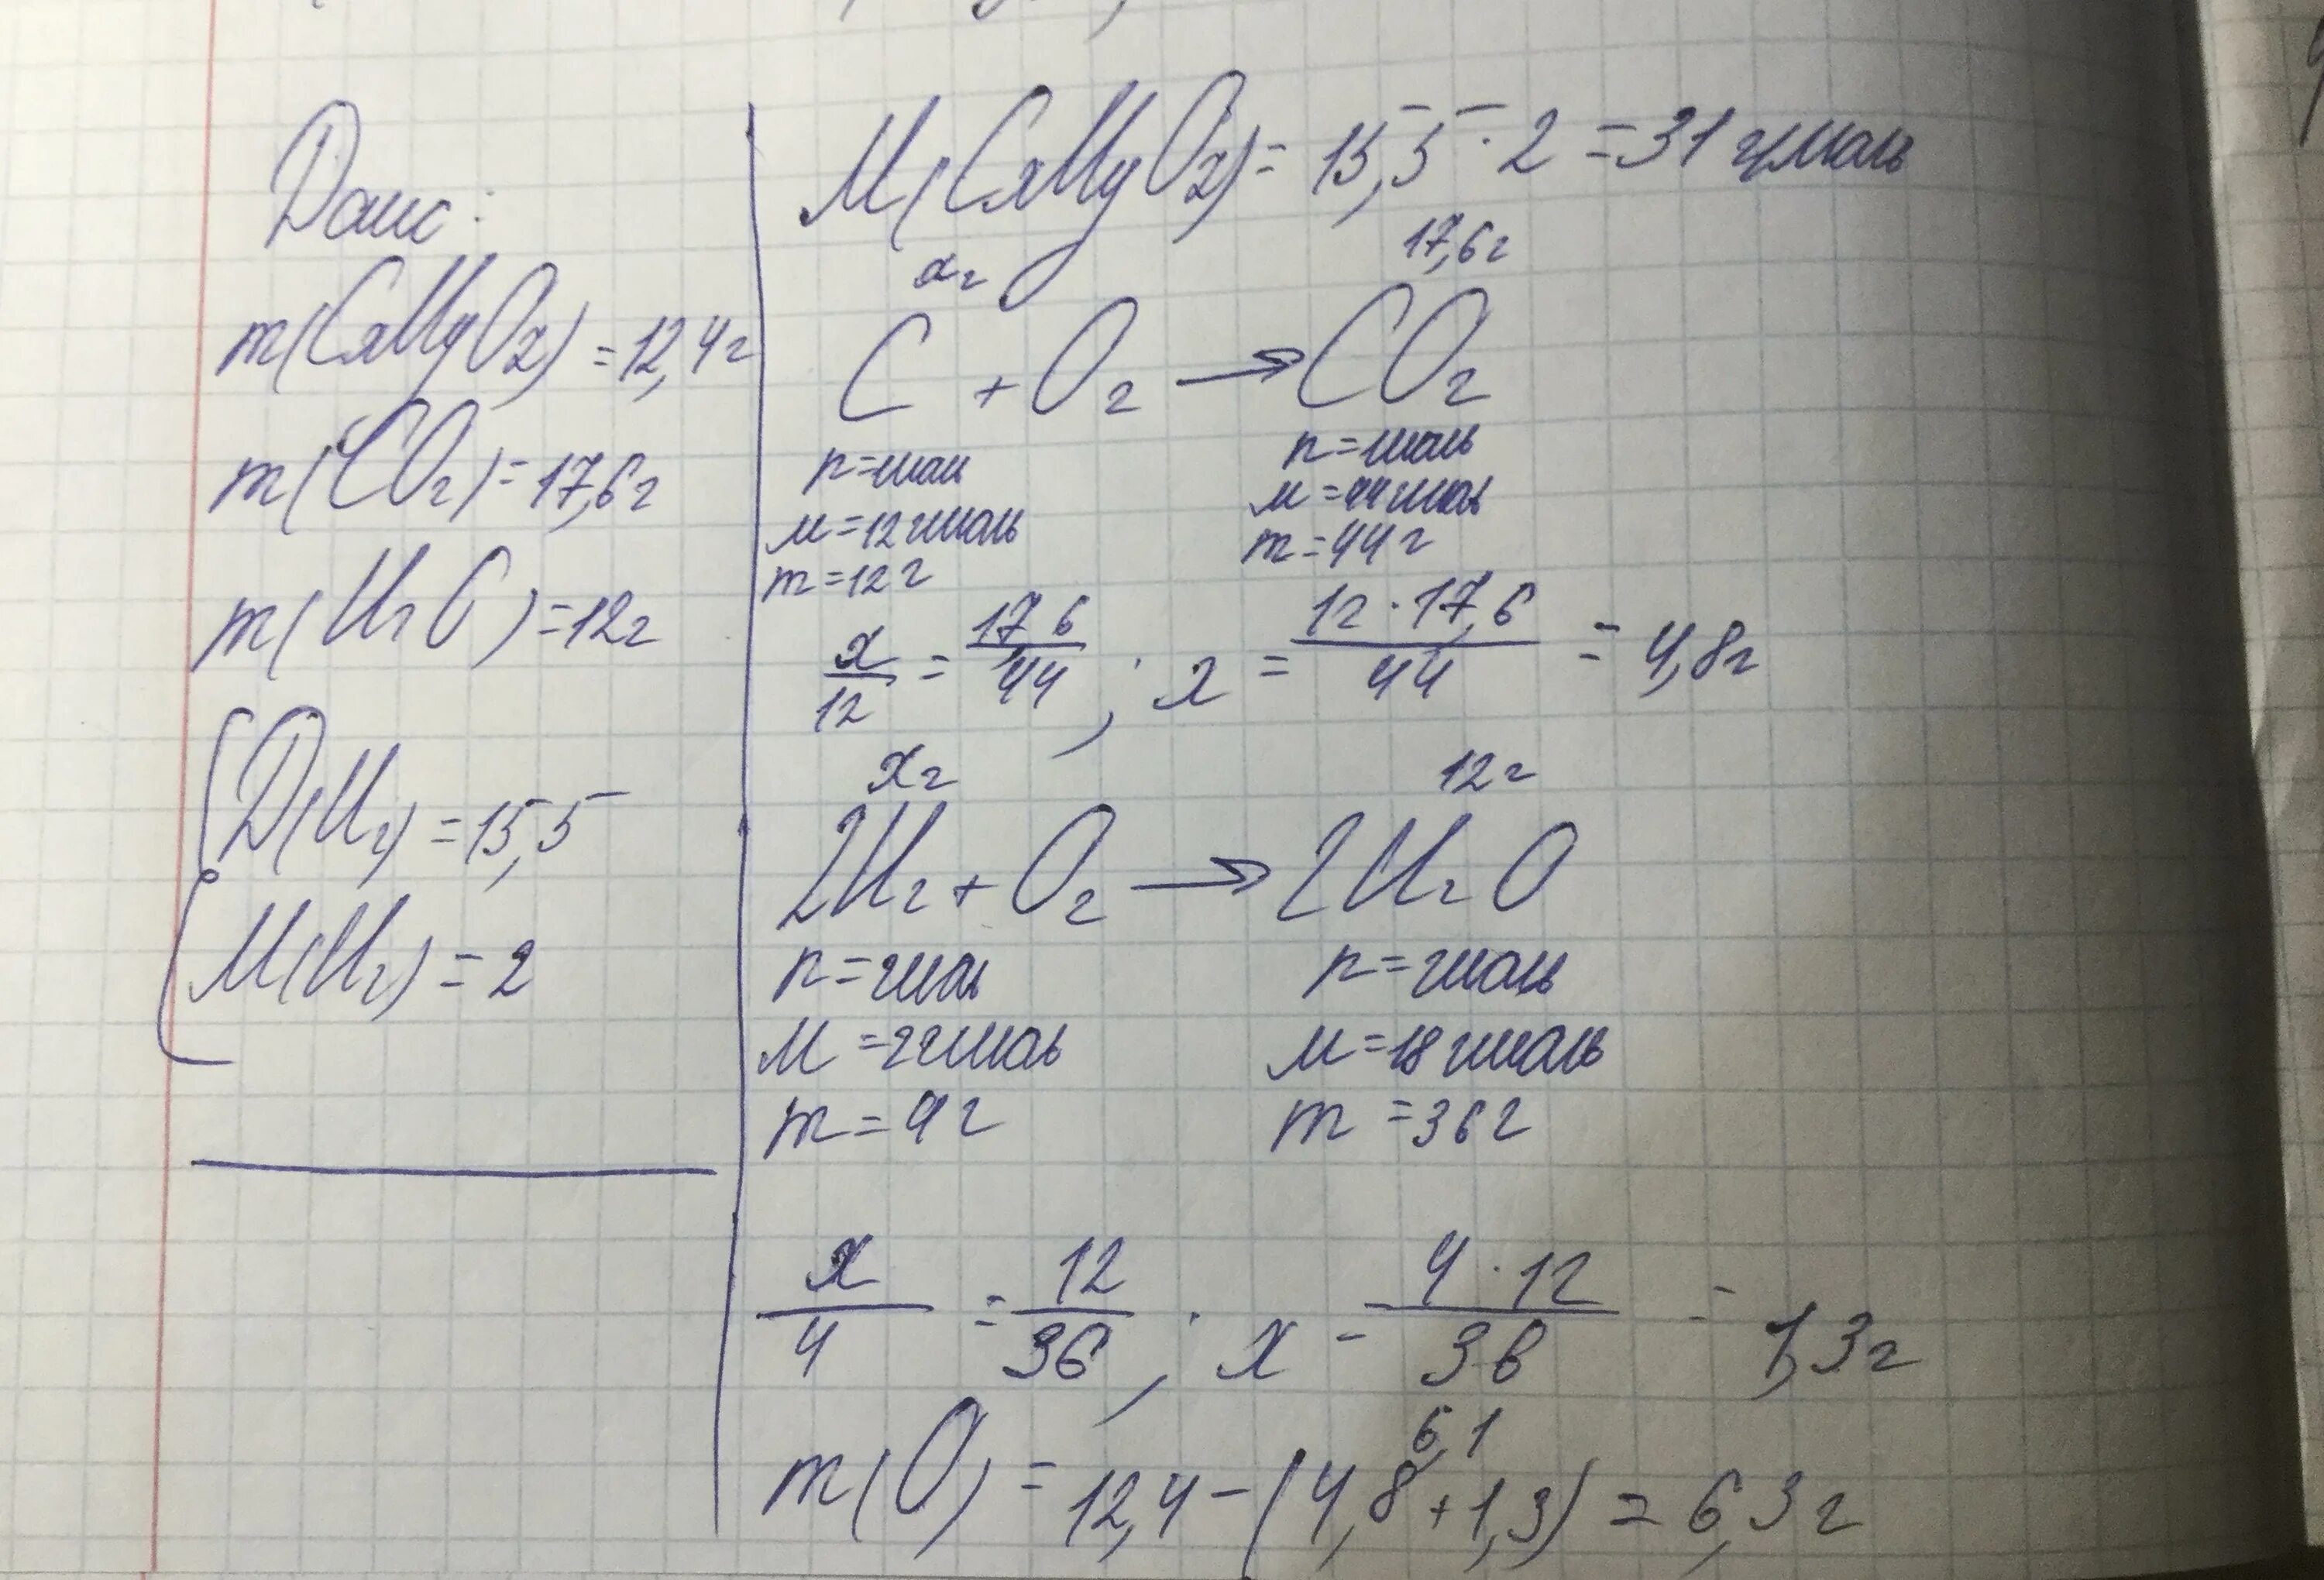 Дано:
m(CxHyOz) = 12,4г
m(CO2) = 17,6г
m(H2O) = 12г
D(H2) = 15,5
M(H2) = 2
M(CxHyOz) = 15,5 · 2 = 31 г/моль
xг 17,6г
C + O2 → CO2
n = моль n = моль
M = 12 г/моль M = 44 г/моль
m = 12г m = 44г
x/12 = 17 6/44 ; x = 12 · 17,6/44 = 4,8г
xг 12г
2H2 + O2 → 2H2O
n = 2моль n = 2моль
M = 2 г/моль M = 18 г/моль
m = 4г m = 36г
x/4 = 12/36 ; x = 4 · 12/36 = 1,3г
6,1
m(O) = 12,4 - (4,8 + 1,3) = 6,3г